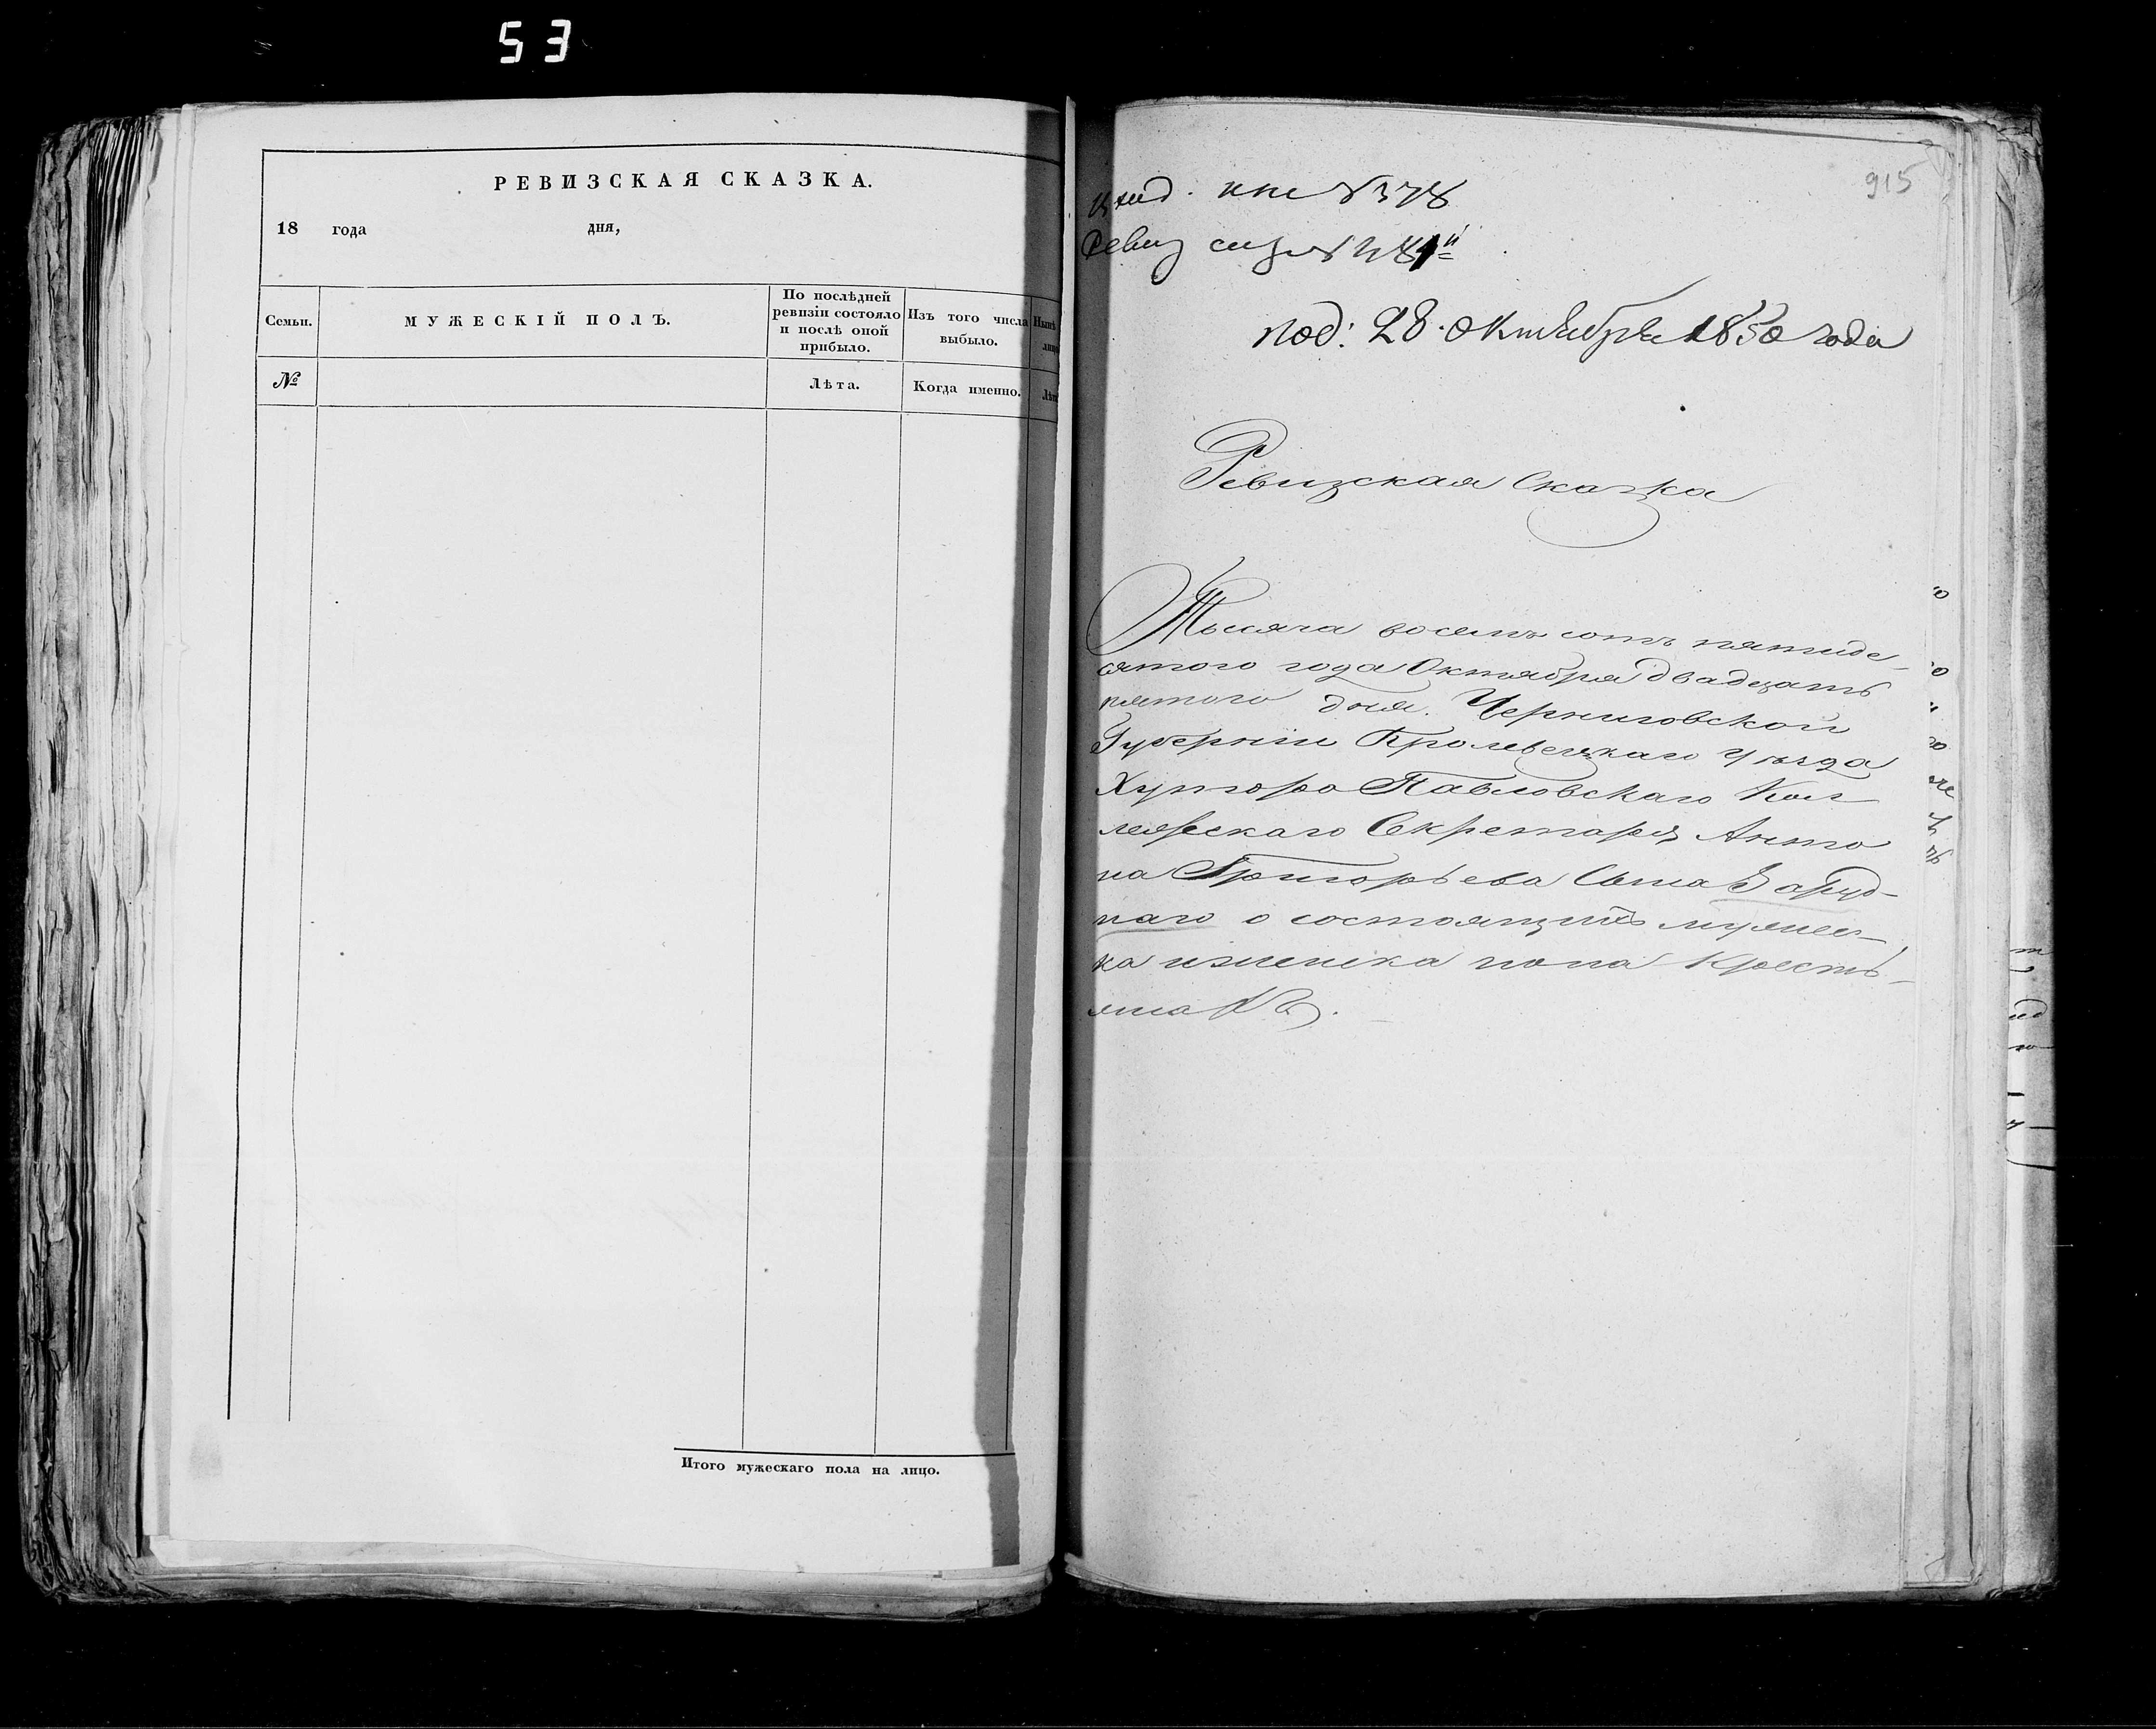 53
РЕВИЗСКАЯ СКАЗКА.
18 года дня,
Семьи.
МУЖЕСКІЙ ПОЛЪ.
По послѣдней
ревизіи состояло
и послѣ оной
прибыло.
Изъ того числа
выбыло.
№
Лѣта.
Когда именно.
Итого мужескаго пола на лицо.
915
под: 28 Октября 1850 года
Ревизская Сказка
Тысяча восемь сотъ пятиде-
сятого года Октября двадцать
пятого дня. Черниговской
Губерніи Кролевецкаго Уѣзда
Хутора Павловскаго Кол
лежскаго Секретаря Анто
на Григорьева Сына Заруд-
наго о состоящихъ мужес-
ка и женска пола Кресть-
янахъ.